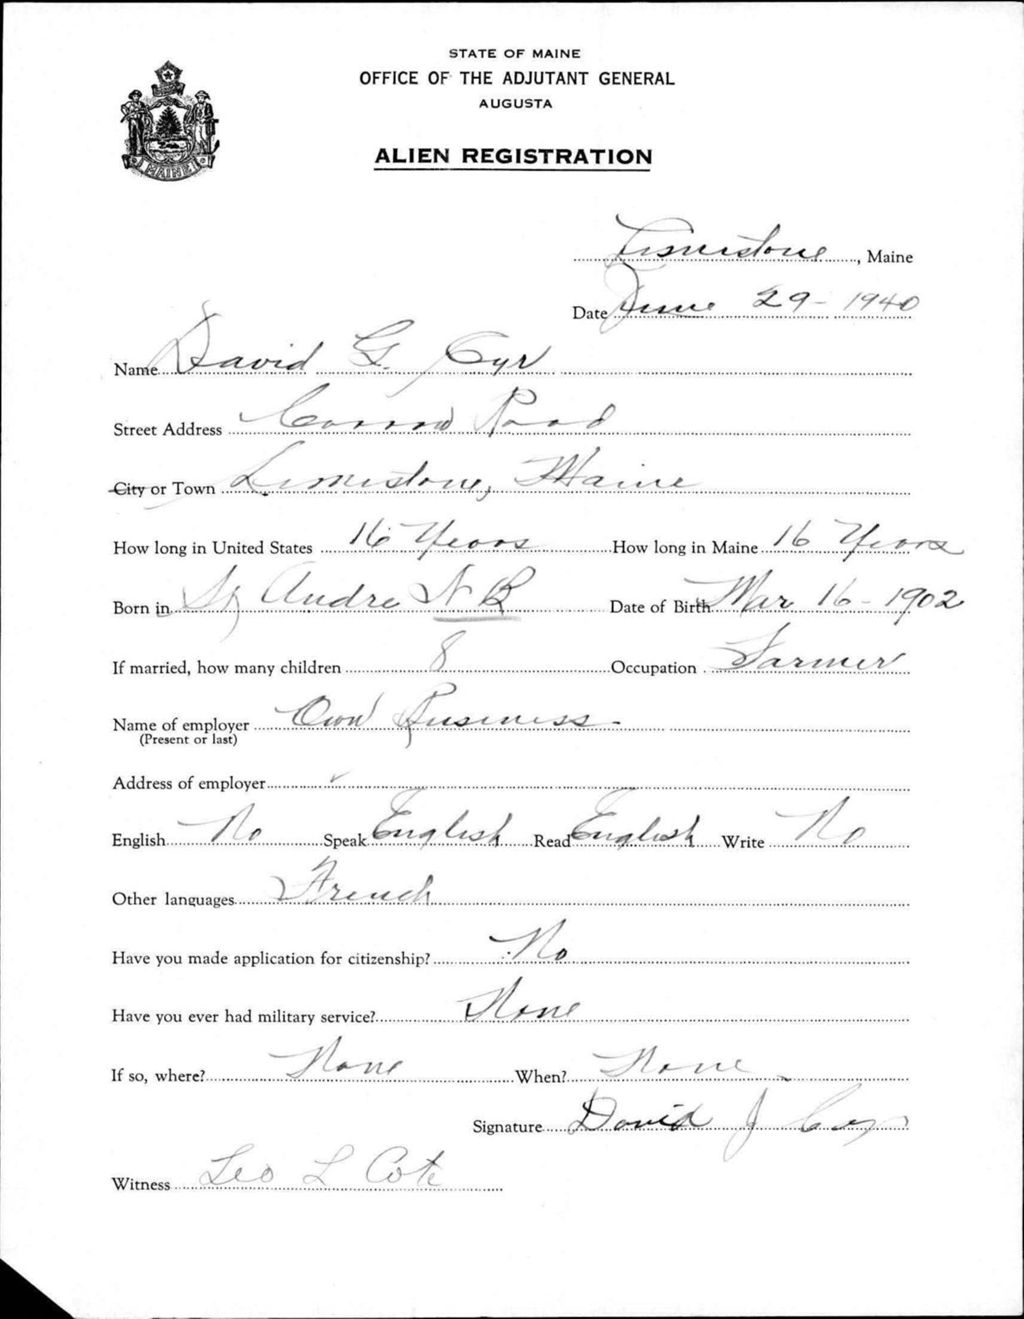 STATE OF MAINE
OFFICE OF THE ADJUTANT GENERAL
AUGUSTA
ALIEN REGISTRATION
MAINE
Limestone, Maine
Date June 29 - 1940
Name David G. Cyr
Street Address Road
City or Town Limestone, Maine
How long in United States 16 Years How long in Maine 16 Years
Born in St Andre N B Date of Birth Mar 16 - 1902
If married, how many children 8 Occupation Farmer
Name of employer Own Business -
(Present or last)
Address of employer
English No Speak English Read English Write No
Other languages French
Have you made application for citizenship? No
Have you ever had military service? None
If so, where? None When? None
Signature David J Cyr
Witness Leo L Cote